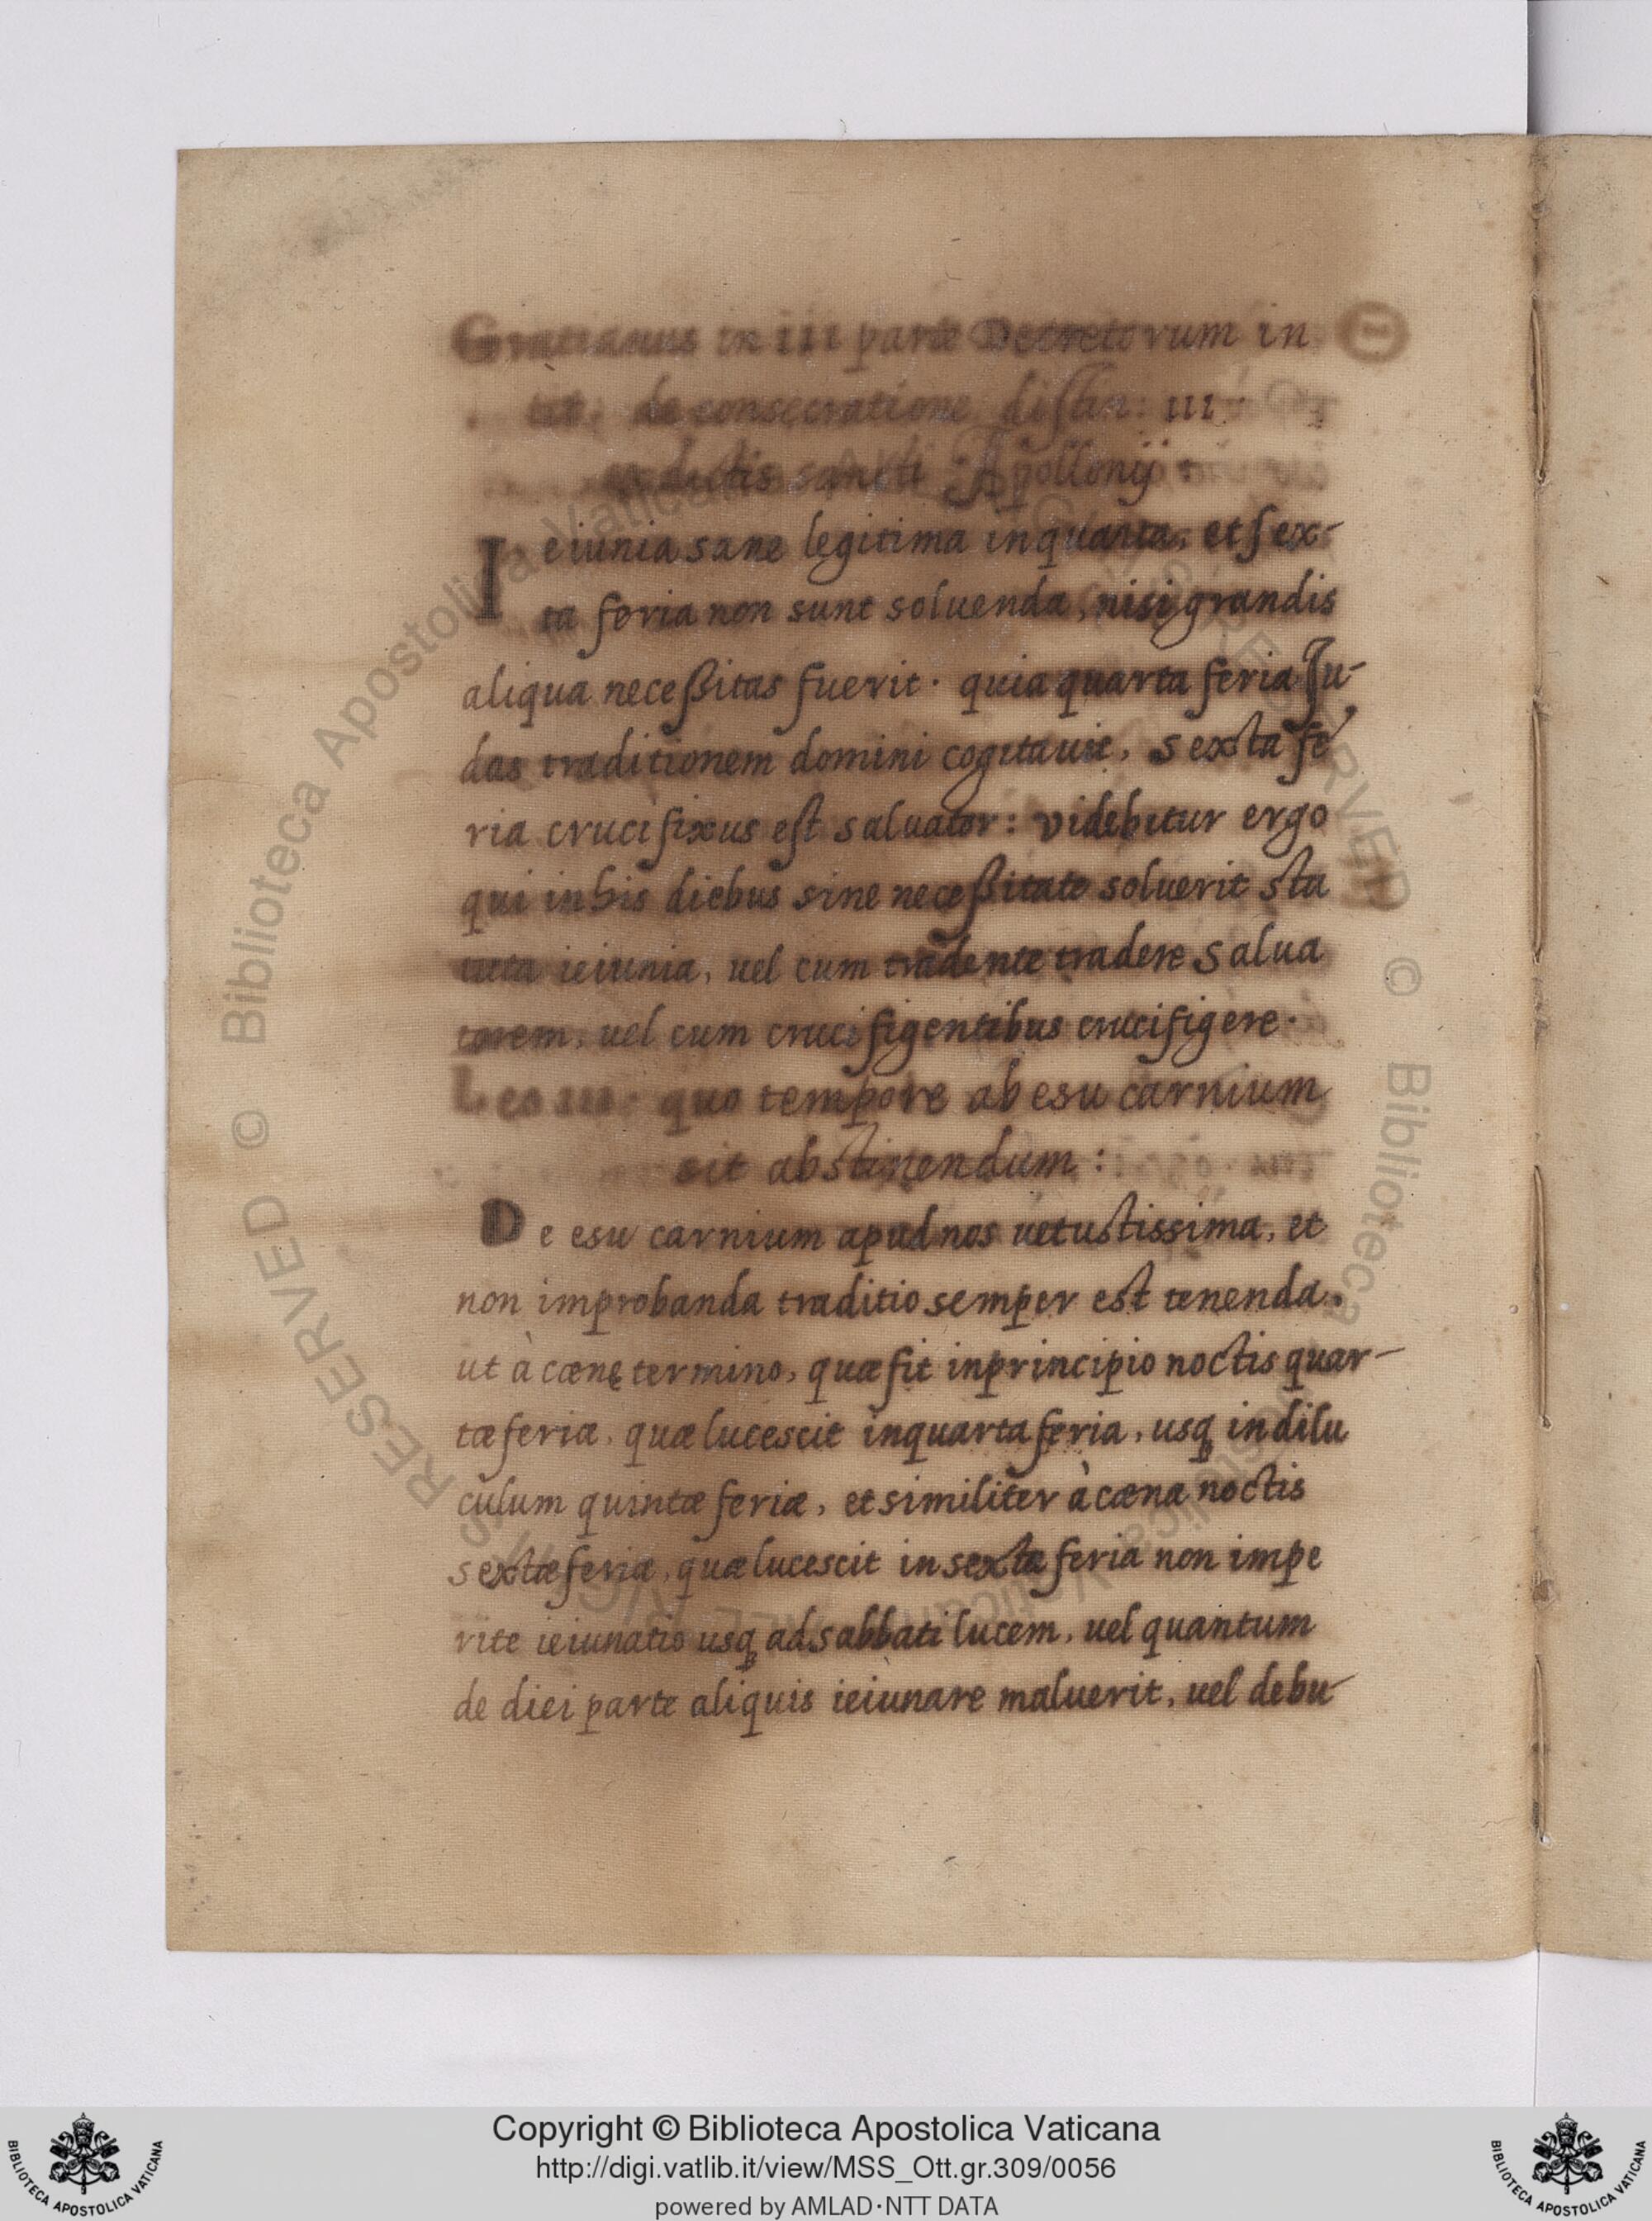 Gratianus in III parte Decretorum in
tit. de consecratione distin: III.
ex dictis sancti Apollonij:
Ieiunia sane legitima in quarta, et sex-
ta feria non sunt soluenda, nisi grandis
aliqua neceßitas fuerit. quia quarta feria Ju-
das traditionem domini cogitauit, sexta fe
ria crucifixus est saluator: videbitur ergo
qui in his diebus sine neceßitate soluerit sta
tuta ieiunia, uel cum tradente tradere Salua
torem, uel cum crucifigentibus crucifigere.
Leo III. quo tempore ab esu carnium
sit abstinendum:
De esu carnium apud nos uetustissima, et
non improbanda traditio semper est tenenda.
ut à cœnę termino, quæ fit in principio noctis quar-
tæ feriæ, quæ lucescit in quarta feria, usq in dilu
culum quintæ feriæ, et similiter à cœna noctis
sextæ feriæ, quæ lucescit in sexta feria non impe
rite ieiunatio usq ad sabbati lucem, uel quantum
de diei parte aliquis ieiunare maluerit, uel debu-
Copyright © Biblioteca Apostolica Vaticana
http://digi.vatlib.it/view/MSS_Ott.gr.309/0056
powered by AMLAD·NTT DATA
BIBLIOTECA APOSTOLICA VATICANA
BIBLIOTECA APOSTOLICA VATICANA